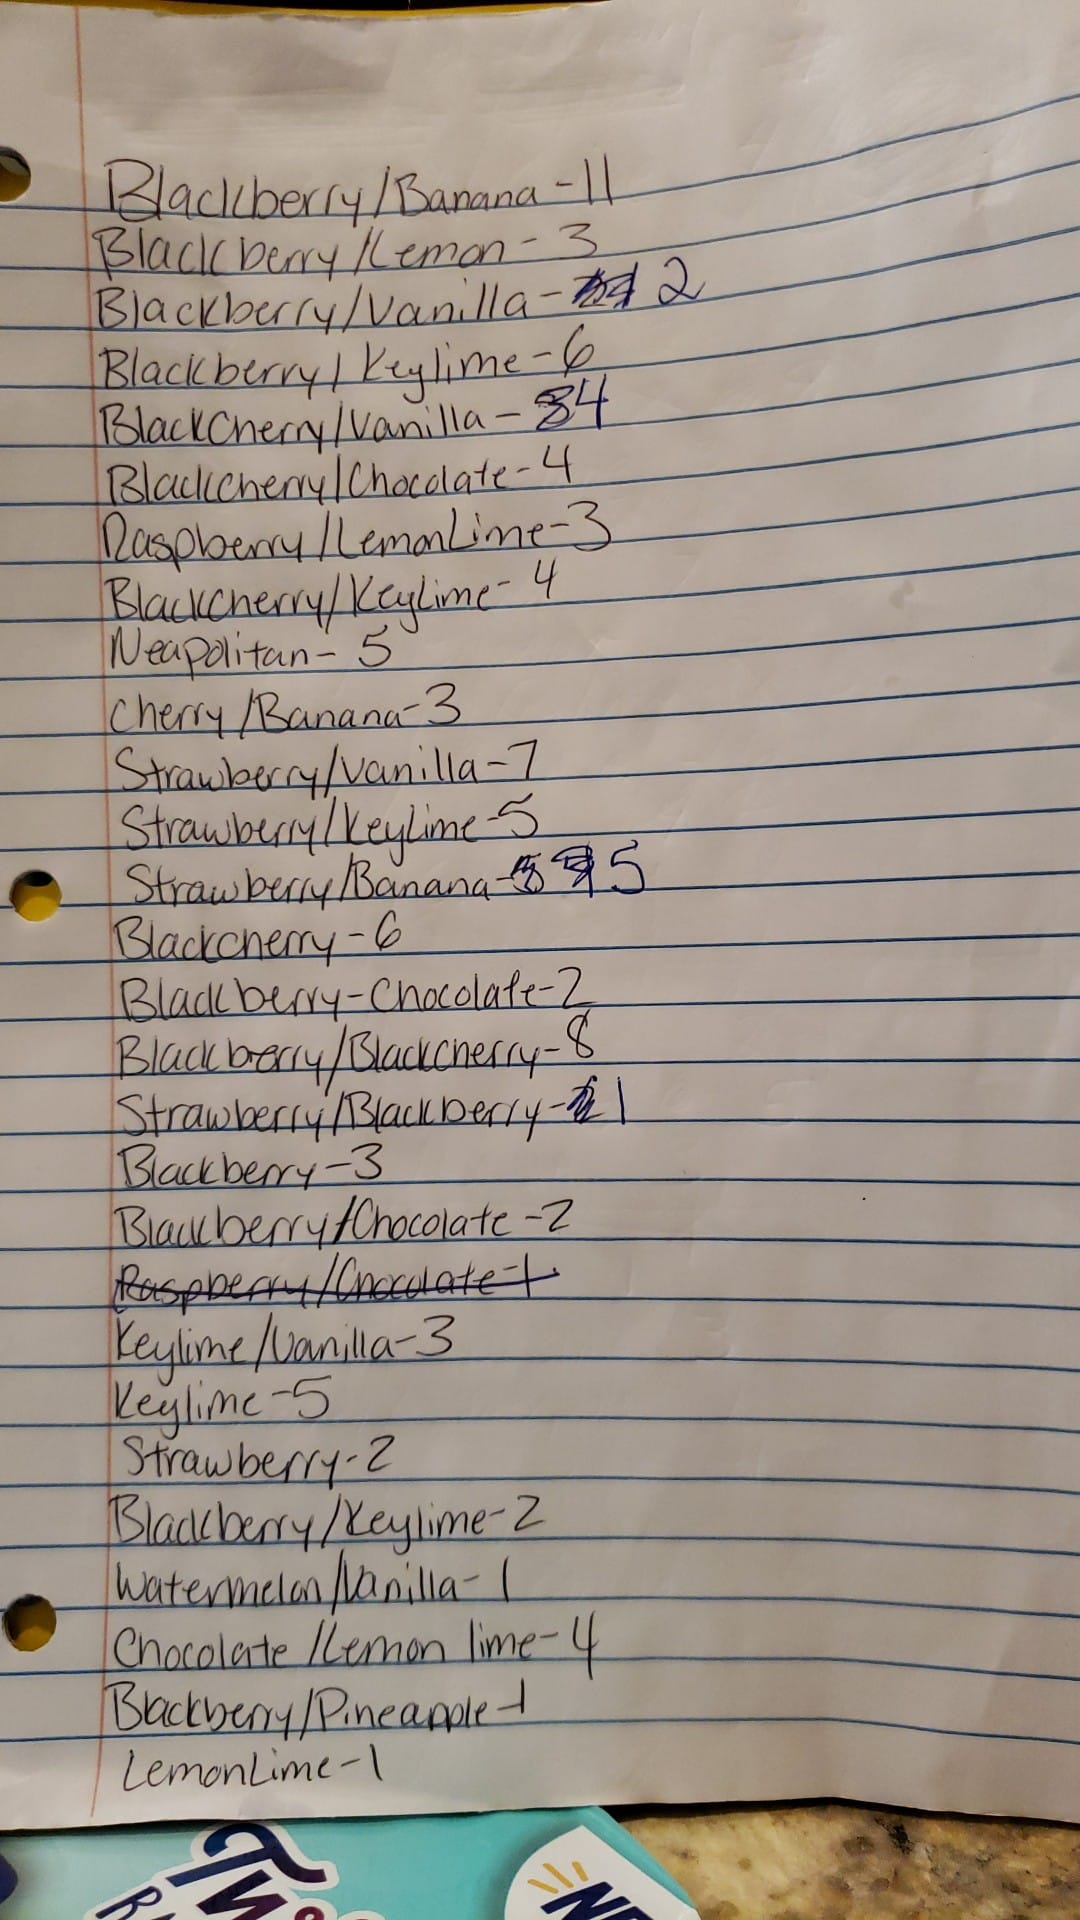 Blackberry/Banana-11
Blackberry/Lemon-3
Blackberry/Vanilla-2
Blackberry/Keylime-6
BlackCherry/Vanilla-4
Blackcherry/Chocolate-4
Raspberry/LemonLime-3
Blackcherry/KeyLime-4
Neapolitan-5
Cherry/Banana-3
Strawberry/Vanilla-7
Strawberry/KeyLime-5
Strawberry/Banana-5
Blackcherry-6
Blackberry-Chocolate-2
Blackberry/Blackcherry-8
Strawberry/Blackberry-1
Blackberry-3
Blackberry/Chocolate-2
Raspberry/Chocolate-1
Keylime/Vanilla-3
Keylime-5
Strawberry-2
Blackberry/Keylime-2
Watermelon/Vanilla-1
Chocolate/Lemon lime-4
Blackberry/Pineapple-1
LemonLime-1